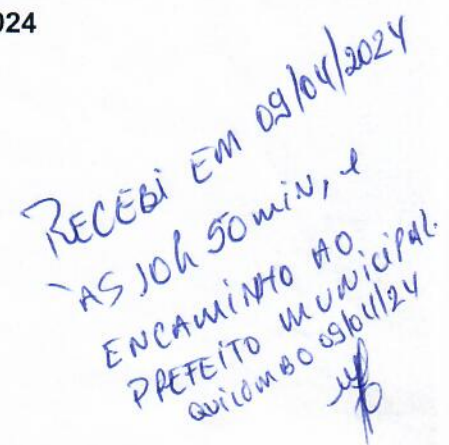 024
RECEBI EM 09/04/2024
ÀS 10h 50 min, e
ENCAMINHO AO
PREFEITO MUNICIPAL.
QUILOMBO 09/04/24